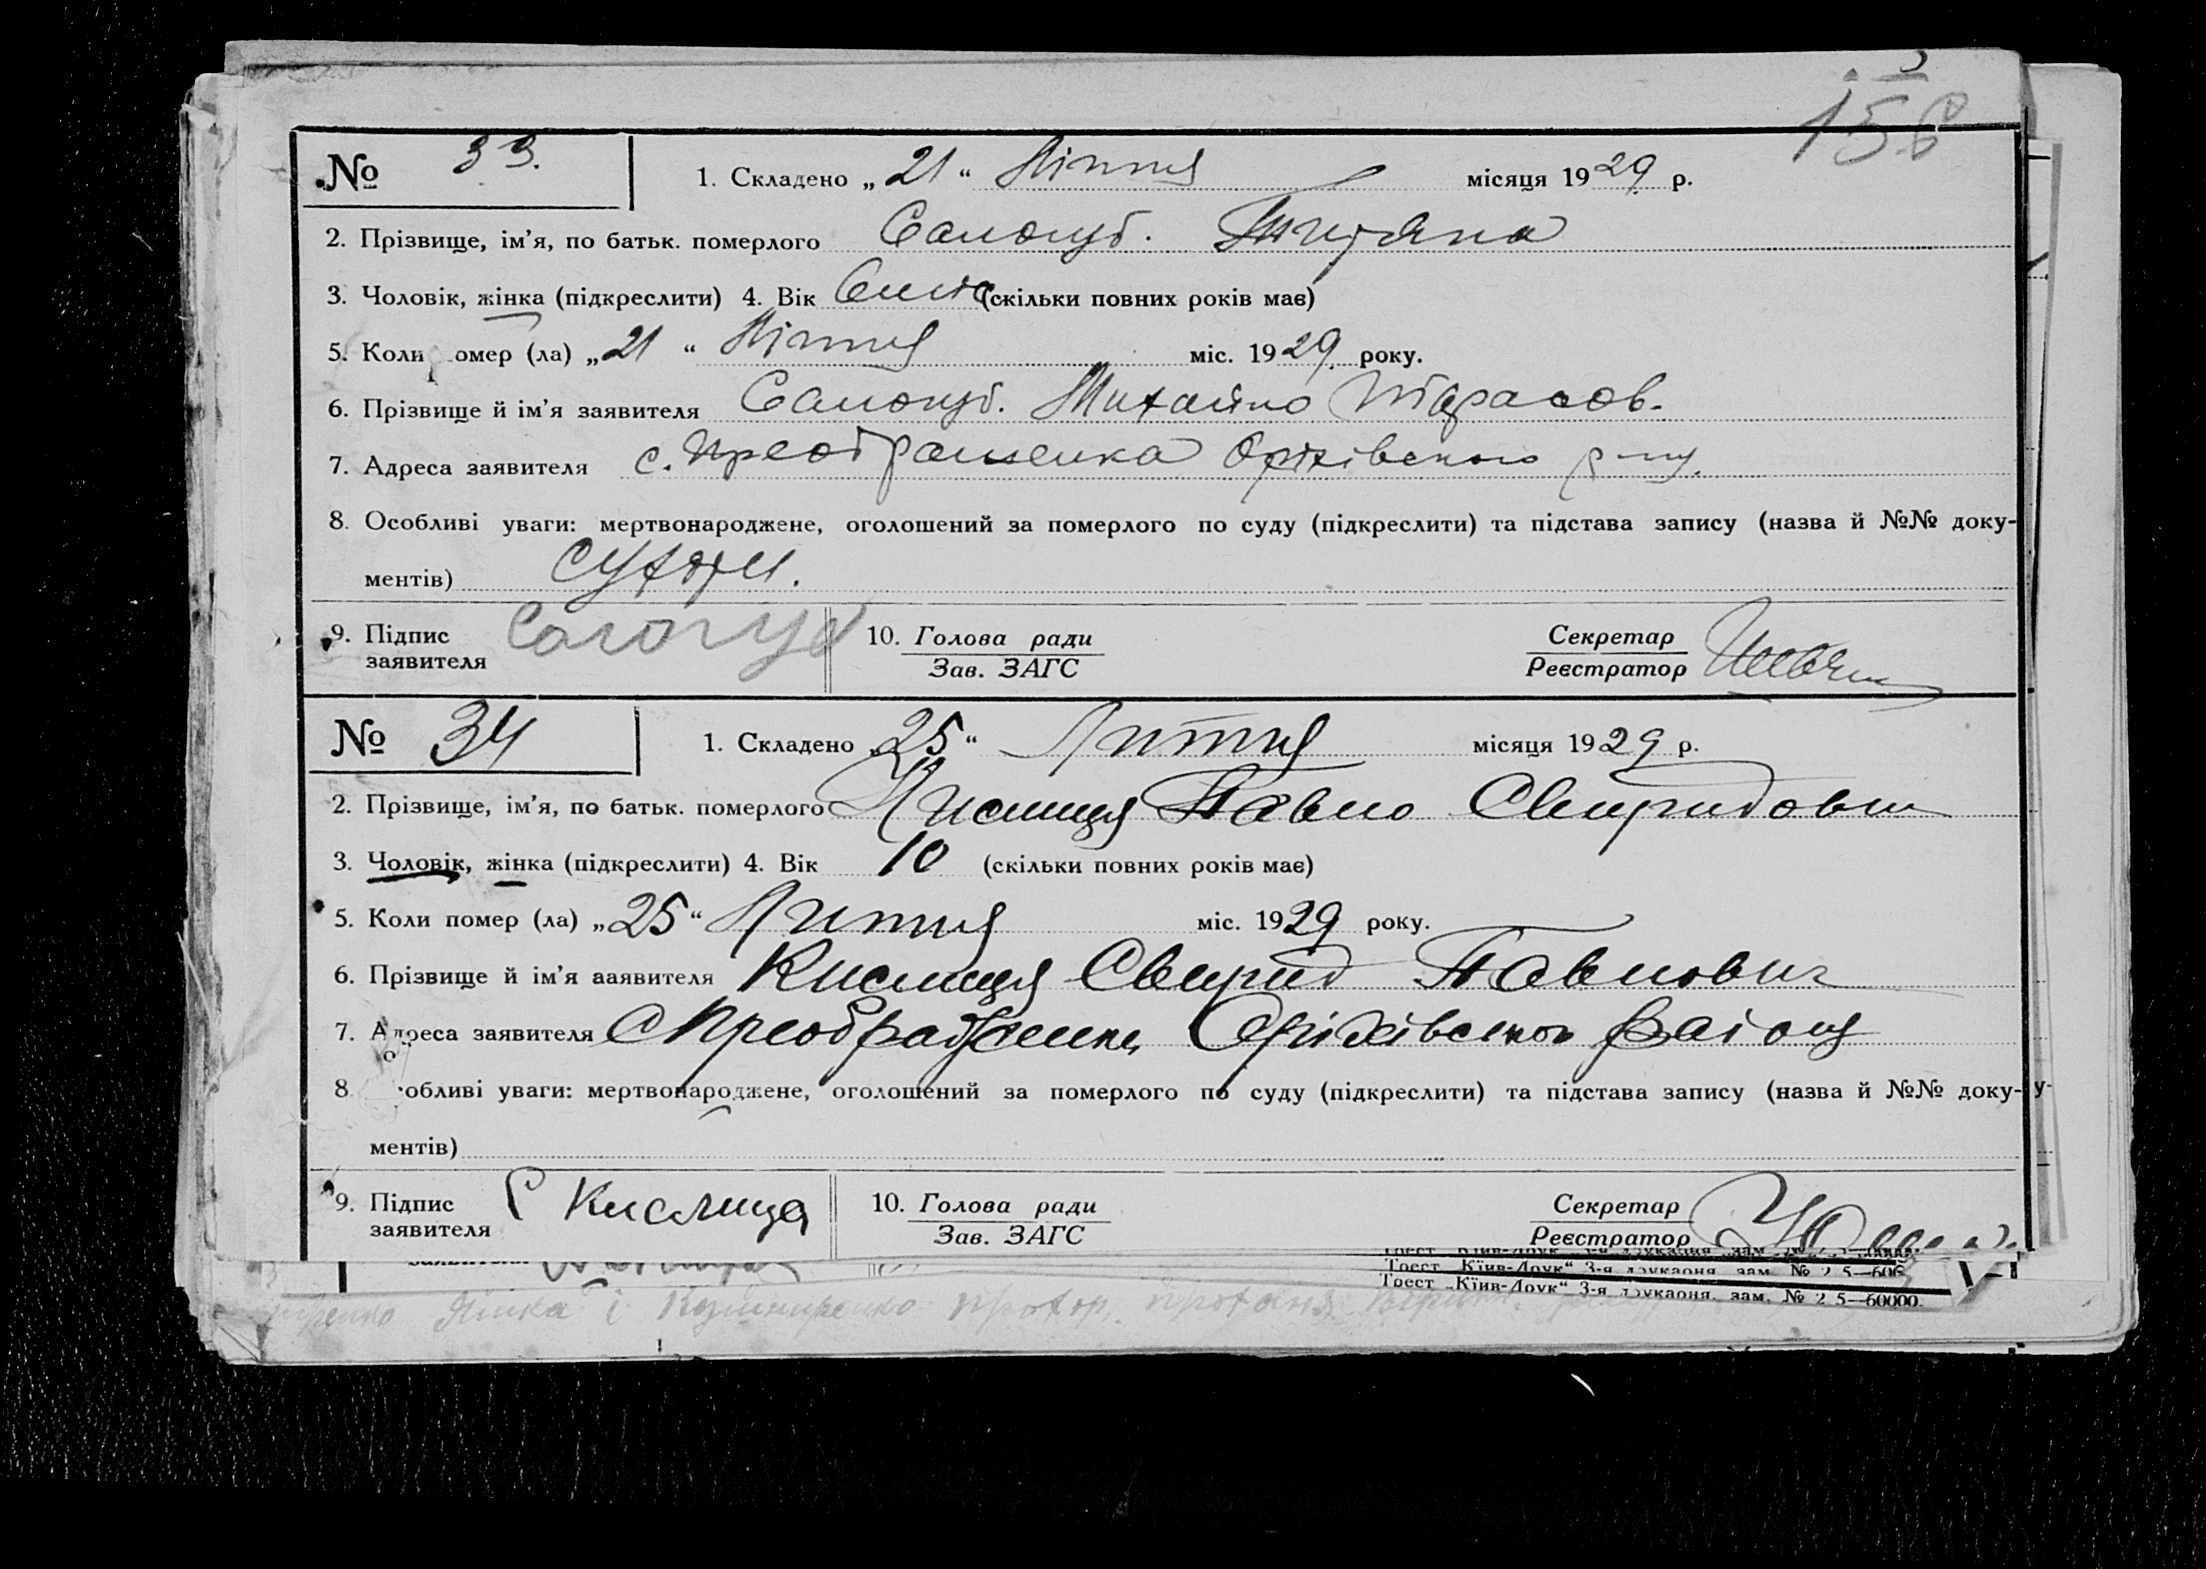 156
№ 33. 1. Складено „21“ Ліпня місяця 1929 р.
2. Прізвище, ім'я, по батьк. померлого Салогуб. Титяна
3. Чоловік, жінка (підкреслити) 4. Вік (скільки повних років має)
5. Коли помер (ла) „21“ Ліпня міс. 1929 року.
6. Прізвище й ім'я заявителя Салогуб. Михайло Тарасов.
7. Адреса заявителя с. Преображенка Оріхівського р-ну.
8. Особливі уваги: мертвонароджене, оголошений за померлого по суду (підкреслити) та підстава запису (назва й №№ доку-
ментів) сухоти.
9. Підпис заявителя Салогуб 10. Голова ради Секретар
Зав. ЗАГС Реєстратор
№ 34 1. Складено „25“ Липня місяця 1929 р.
2. Прізвище, ім'я, по батьк. померлого Кислиця Павло Свиридович
3. Чоловік, жінка (підкреслити) 4. Вік 10 (скільки повних років має)
5. Коли помер (ла) „25“ Липня міс. 1929 року.
6. Прізвище й ім'я заявителя Кислиця Свирид Павлович
7. Адреса заявителя с Преображенка Оріхівського району
8. Особливі уваги: мертвонароджене, оголошений за померлого по суду (підкреслити) та підстава запису (назва й №№ доку-
ментів)
9. Підпис заявителя С Кислица 10. Голова ради Секретар
Зав. ЗАГС Реєстратор
Трест „Київ-Друк“ 3-я друкарня, зам. № 2 5—60000.